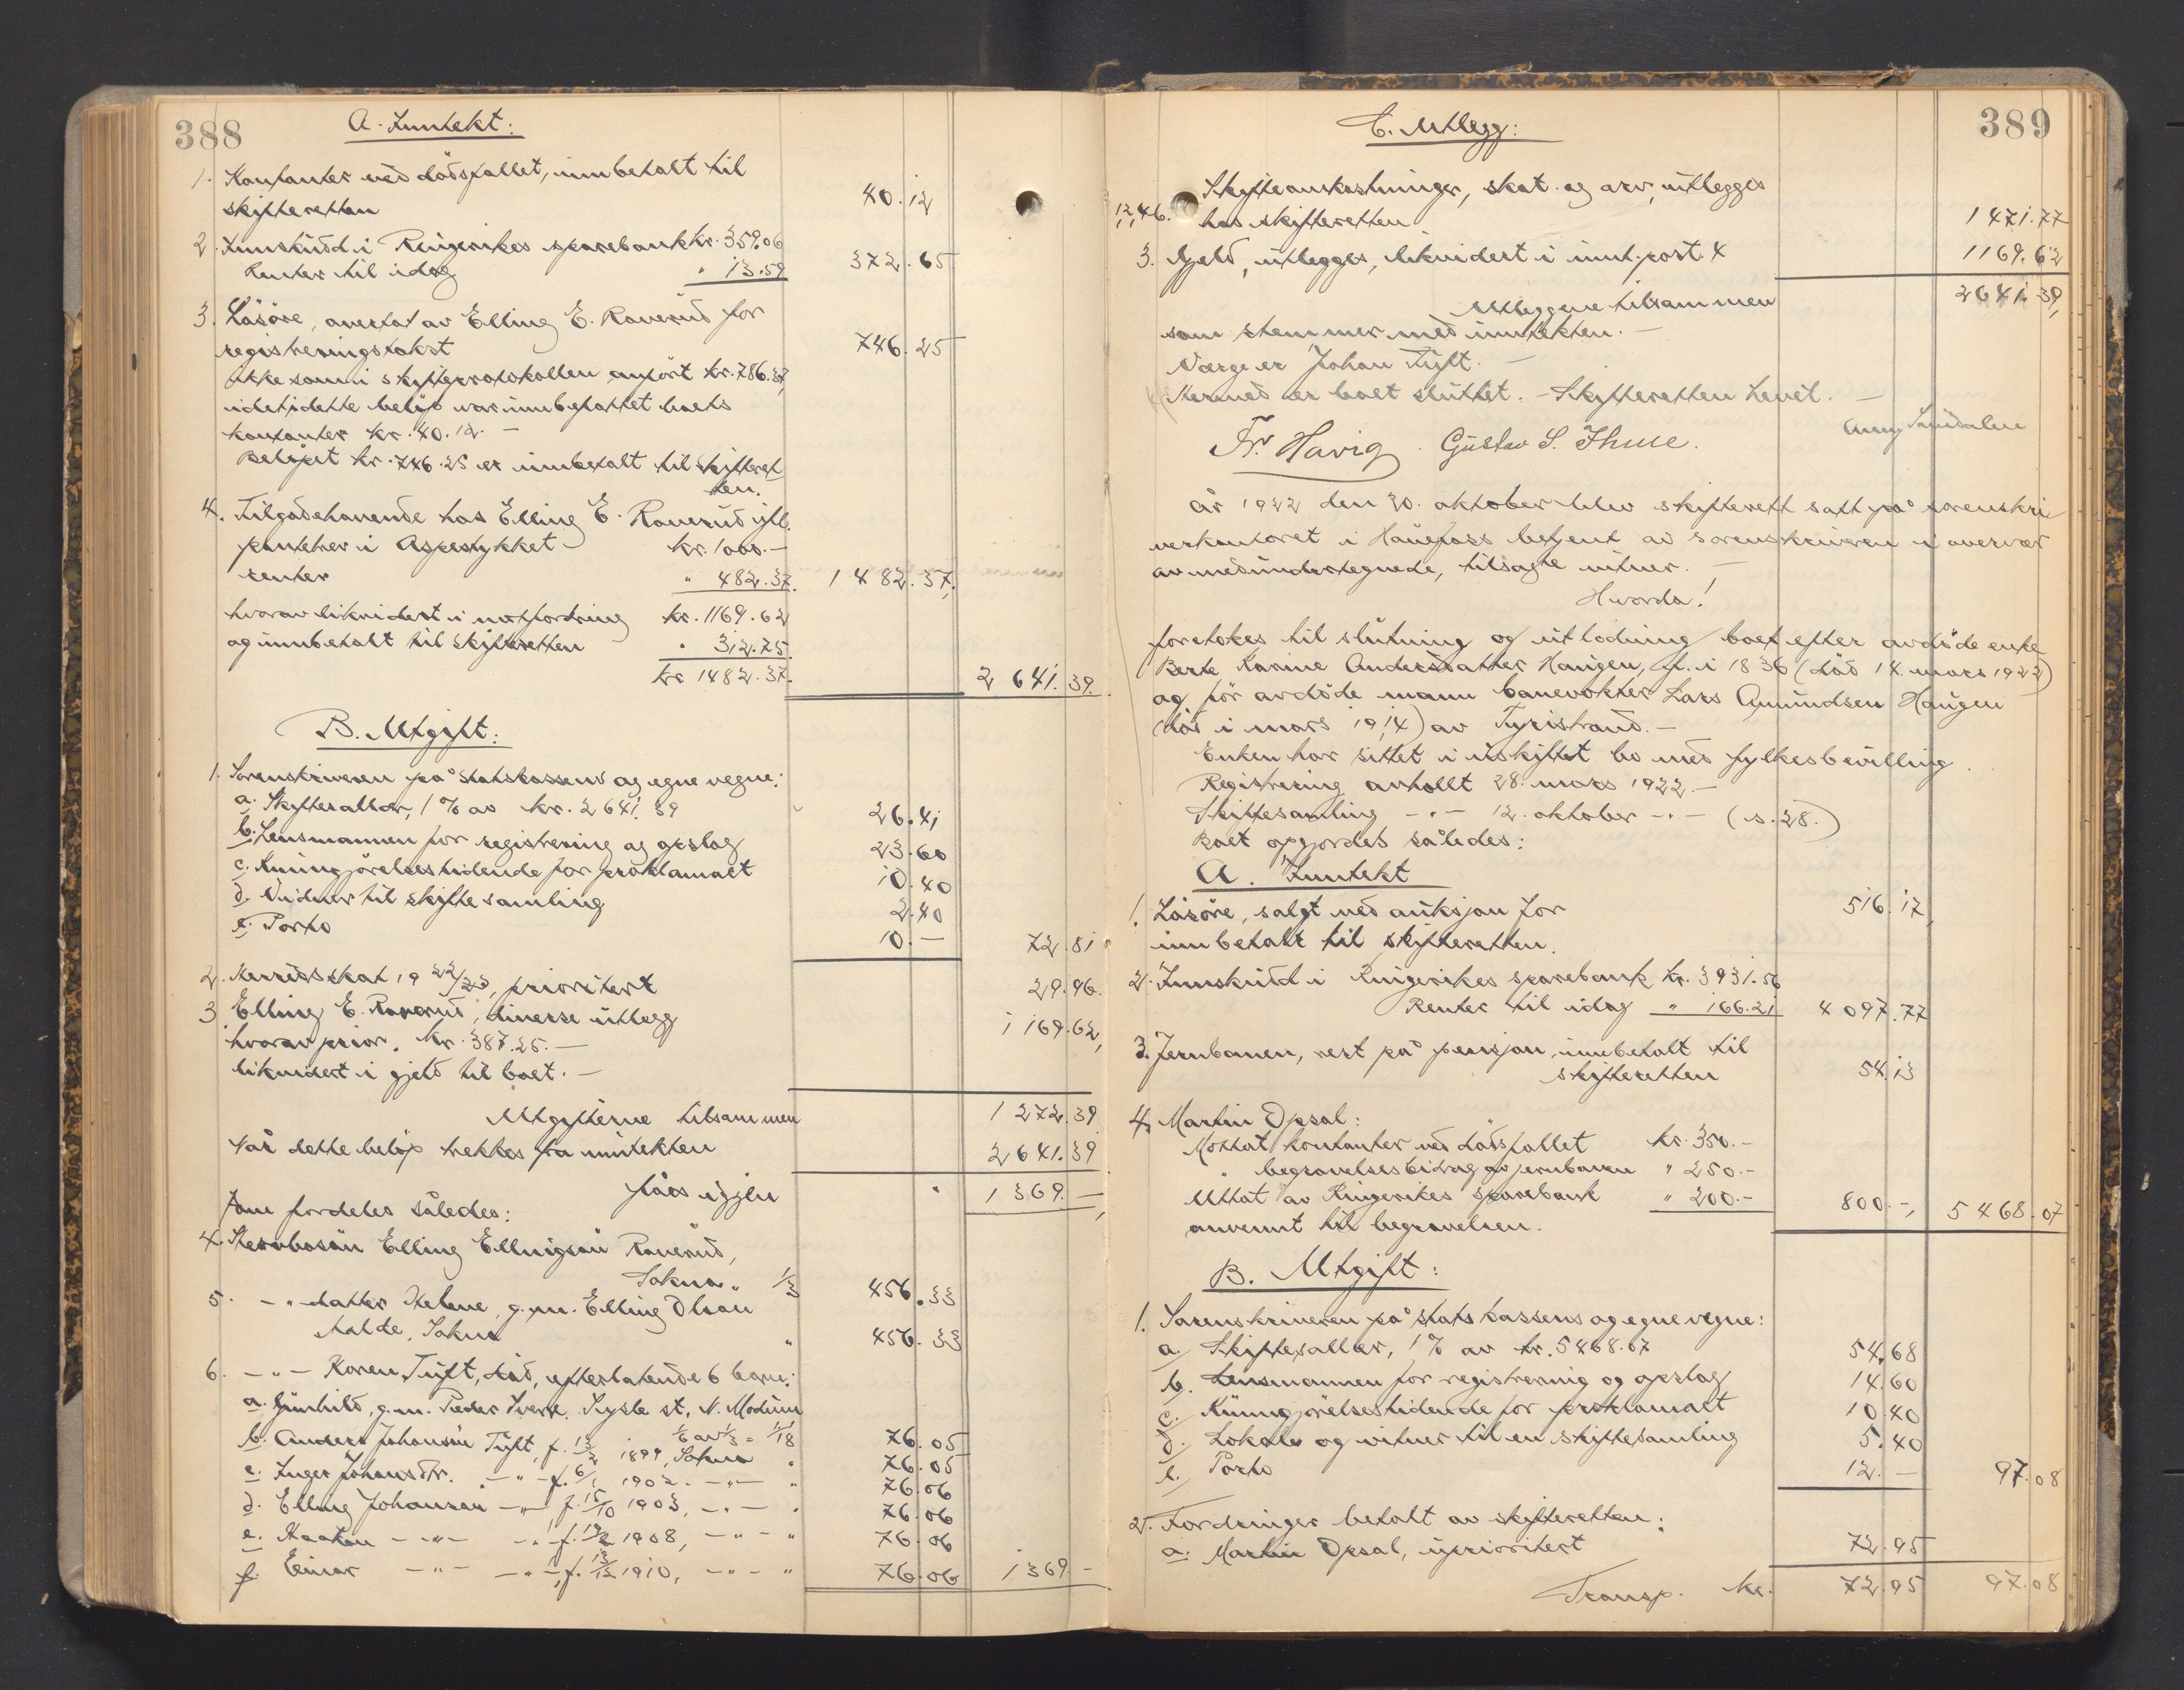 388
A. Inntekt:
1. Kontanter ved dödsfallet, innbetalt til
skifteretten 40.12
2. Innskudd i Ringerikes sparebank kr. 359.06
Renter til idag " 13.59 372.65
3. Lösöre, overtat av Elling E. Rønerud for
registreringstakst 746.25
ikke som i skifteprotokollen anfört kr. 786.37,
idet i dette belöp var innbefattet boets
kontanter kr. 40.12. —
Belöpet kr. 746.25 er innbetalt til skifteret
ten.
4. Tilgodehavende hos Elling E. Rønerud iflg.
panteher i Aspestykket kr. 1000.—
renter " 482.37. 1482.37,
hvorav likvidert i motfordring kr. 1169.62
og innbetalt til skifteretten " 312.75.
kr 1482.37. 2641.39.
B. Utgift:
1. Sorenskriveren på statskassens og egne vegne:
a. Skiftesallær, 1% av kr. 2641.39 26.41
b. Lensmannen for registrering og opslag 23.60
c. Kunngjörelsestidende for proklamaet 10.40
d. Vidner til skiftesamling 2.40
e. Porto 10.— 72.81
2. Herredsskat 19 22/23, prioritert 29.96.
3 Elling E. Rønerud, diverse utlegg 1169.62,
hvorav prior. kr. 387.25.—
likvidert i gjeld til boet.—
Utgifterne tilsammen 1272.39
Når dette belöp trekkes fra inntekten 2641.39
fåes igjen 1369.—,
som fordeles således:
4. Stervbosön Elling Ellingsön Rønerud,
Sokna " 1/3 456.33
5. —"— datter Helene, g.m. Elling Olsson
Halde, Sokna " 456.33
6. —"— Karen Tuft, död, efterlatende 6 barn:
a. Gunhild, g.m. Peder Sverre, Sysle st., N. Modum
1/6 av 1/3 = 1/18 76.05
b. Anders Johansön Tuft, f. 1899, Sokna " 76.05
c. Inger Johansdtr. —"— f. 6/1 1902. —"— " 76.06
d. Elling Johansön —"— f. 15/10 1903, —"— " 76.06
e. Haakon —"— —"— f. 1908, —"— " 76.06
f. Einar —"— —"—, f. 13/12 1910, —"— " 76.06 1369.-
389
C. Utlegg:
1,2,4-6. Skifteomkostninger, skat og arv, utlegges
hos skifteretten 1471.77
3. Gjeld, utlegges, likvidert i innt.post. 4 1169.62
Utleggene tilsammen 2641.39,
som stemmer med inntekten.—
Verge er Johan Tuft.—
Hermed er boet sluttet.— Skifteretten hevet.—
Fr. Havig Gustav S. Thue.
År 1922 den 20. oktober blev skifterett satt på sorenskri
verkontoret i Hönefoss betjent av sorenskriveren i overvær
av medundertegnede, tilsagte vitner.—
Hvorda!
foretokes til slutning og utlodning boet efter avdöde enke
Berte Karine Andersdatter Haugen, f. i 1836 (död 14. mars 1922)
og för avdöde mann banevokter Lars Amundsen Haugen
(död i mars 1914) av Tyristrand.—
Enken har sittet i uskiftet bo med fylkesbevilling.
Registrering avholt 28. mars 1922.—
Skiftesamling —"— 12. oktober —"— (s. 28.)
Boet opgjordes således:
A. Inntekt
1. Lösöre, salgt ved auksjon for 516.17,
innbetalt til skifteretten.
2. Innskudd i Ringerikes sparebank kr. 3931.56
Renter til idag " 166.21 4097.77
3. Jernbanen, rest på pensjon, innbetalt til
skifteretten 54.13
4. Martin Opsal:
Mottat kontanter ved dödsfallet kr. 350.-
" begravelsesbidrag av jernbanen " 250.-
Uttat av Ringerikes sparebank " 200.- 800.-, 5468.07
anvennt til begravelsen.
B. Utgift:
1. Sorenskriveren på statskassens og egne vegne:
a. Skiftesallær, 1% av kr. 5468.07 54.68
b. Lensmannen for registrering og opslag 14.60
c. Kunngjörelsestidende for proklamaet 10.40
d. Lokale og vitner til en skiftesamling 5.40
e. Porto 12.— 97.08
2. Fordringer betalt av skifteretten:
a. Martin Opsal, uprioritert 72.95
Transp. kr. 72.95 97.08